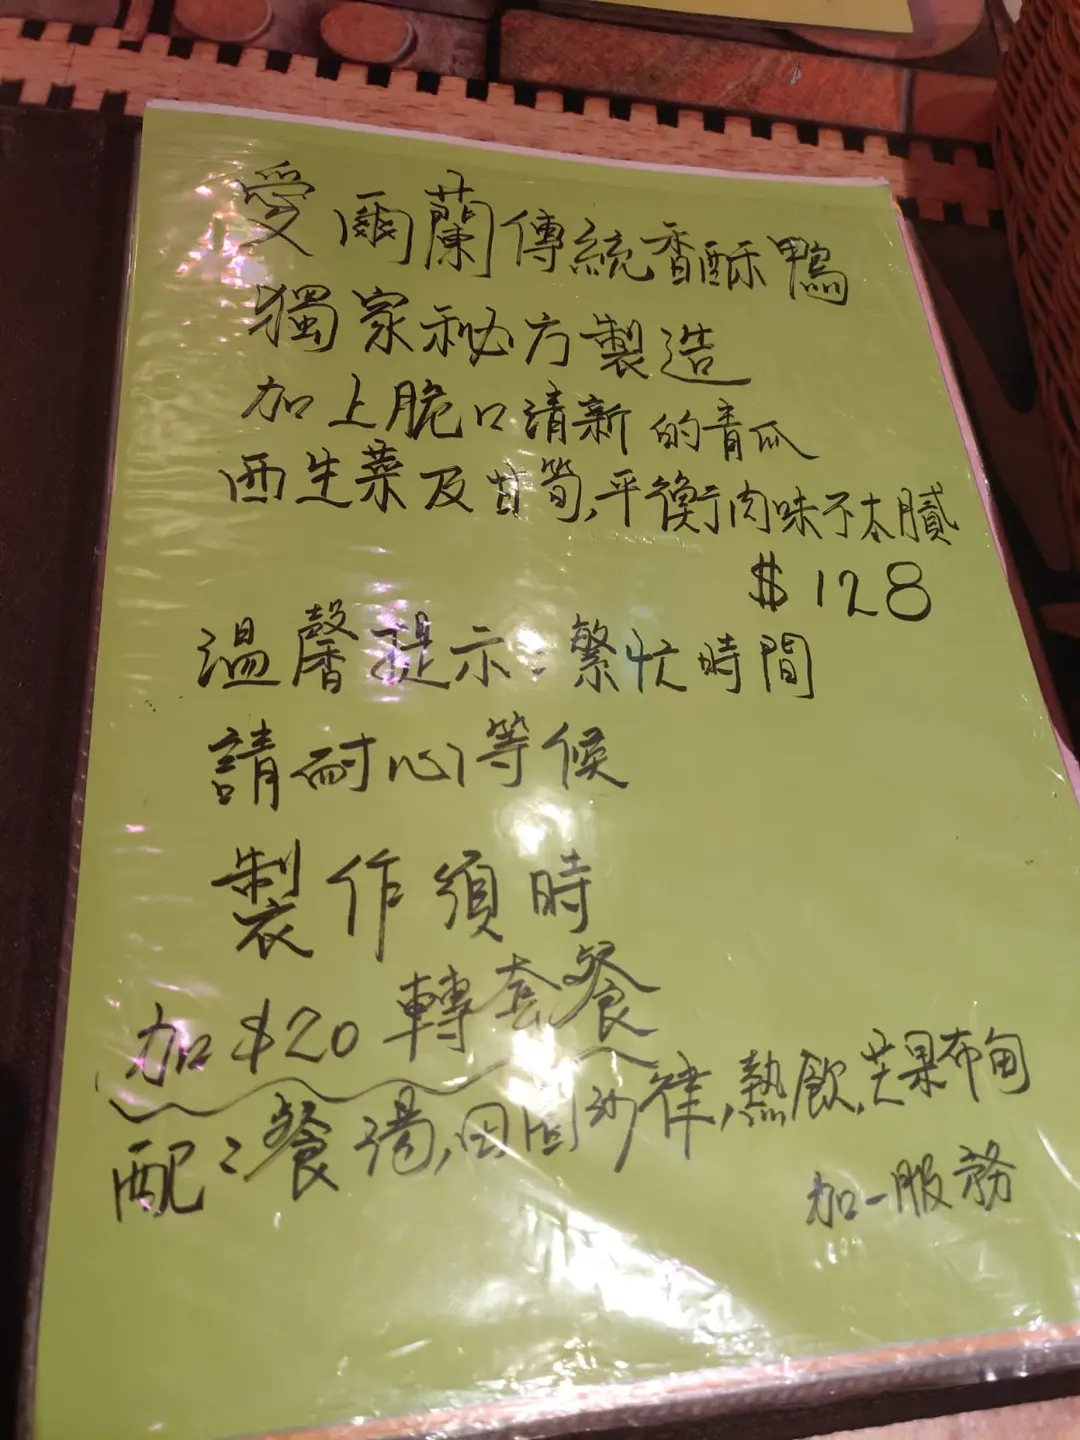 愛爾蘭傳統香酥鴨
獨家秘方製造
加上脆口清新的青瓜
西生菜及甘筍,平衡肉味不太膩
$128
溫馨提示:繁忙時間
請耐心等候
製作須時
加$20轉套餐
配:餐湯,田園沙律,熱飲,芒果布甸
加一服務